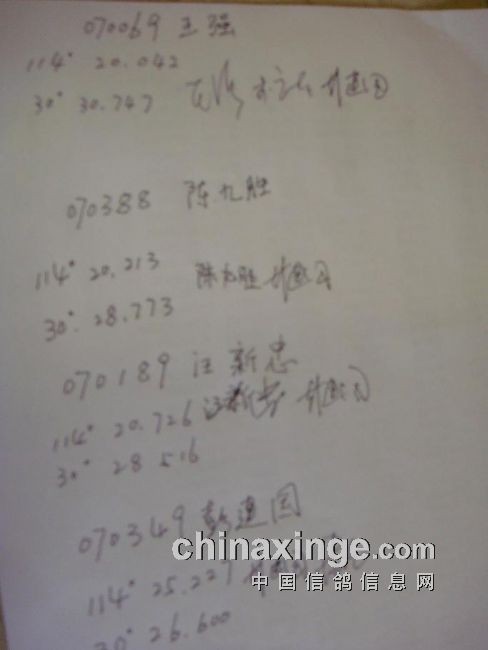 070069 王强
114° 20.042
30° 30.747
070388 陈九胜
114° 20.213
30° 28.773 陈九胜
070189 汪新忠
114° 20.726 汪新忠
30° 28 516
070349 彭建国
114° 25.227
30° 26.600
chinaxinge.com
中国信鸽信息网